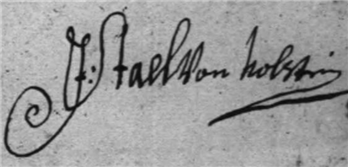 J: Stael von holstein